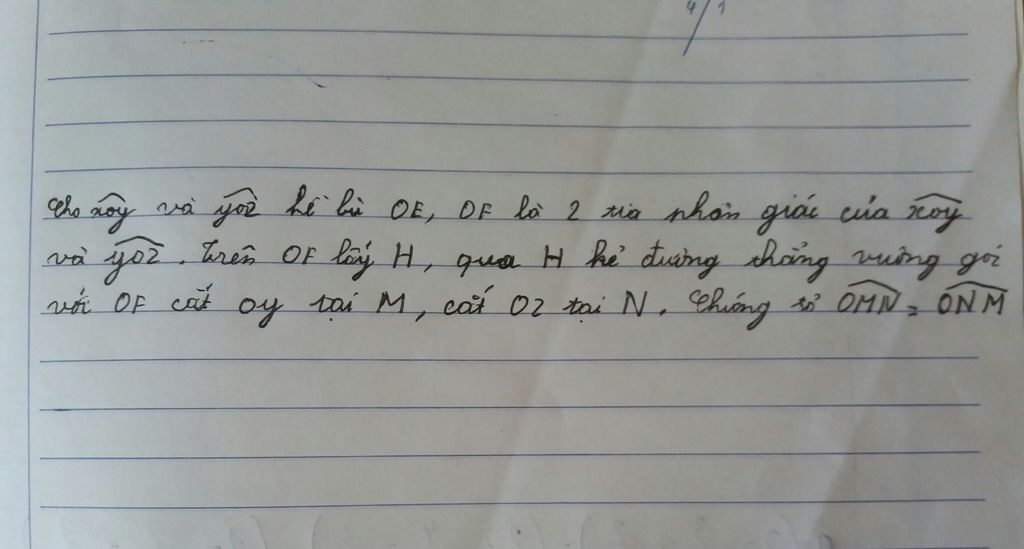 4/1
Cho xOy và yOz kề bù OE, OF là 2 tia phân giác của xOy
và yOz. Trên OF lấy H, qua H kẻ đường thẳng vuông góc
với OF cắt Oy tại M, cắt Oz tại N. Chứng tỏ OMN = ONM